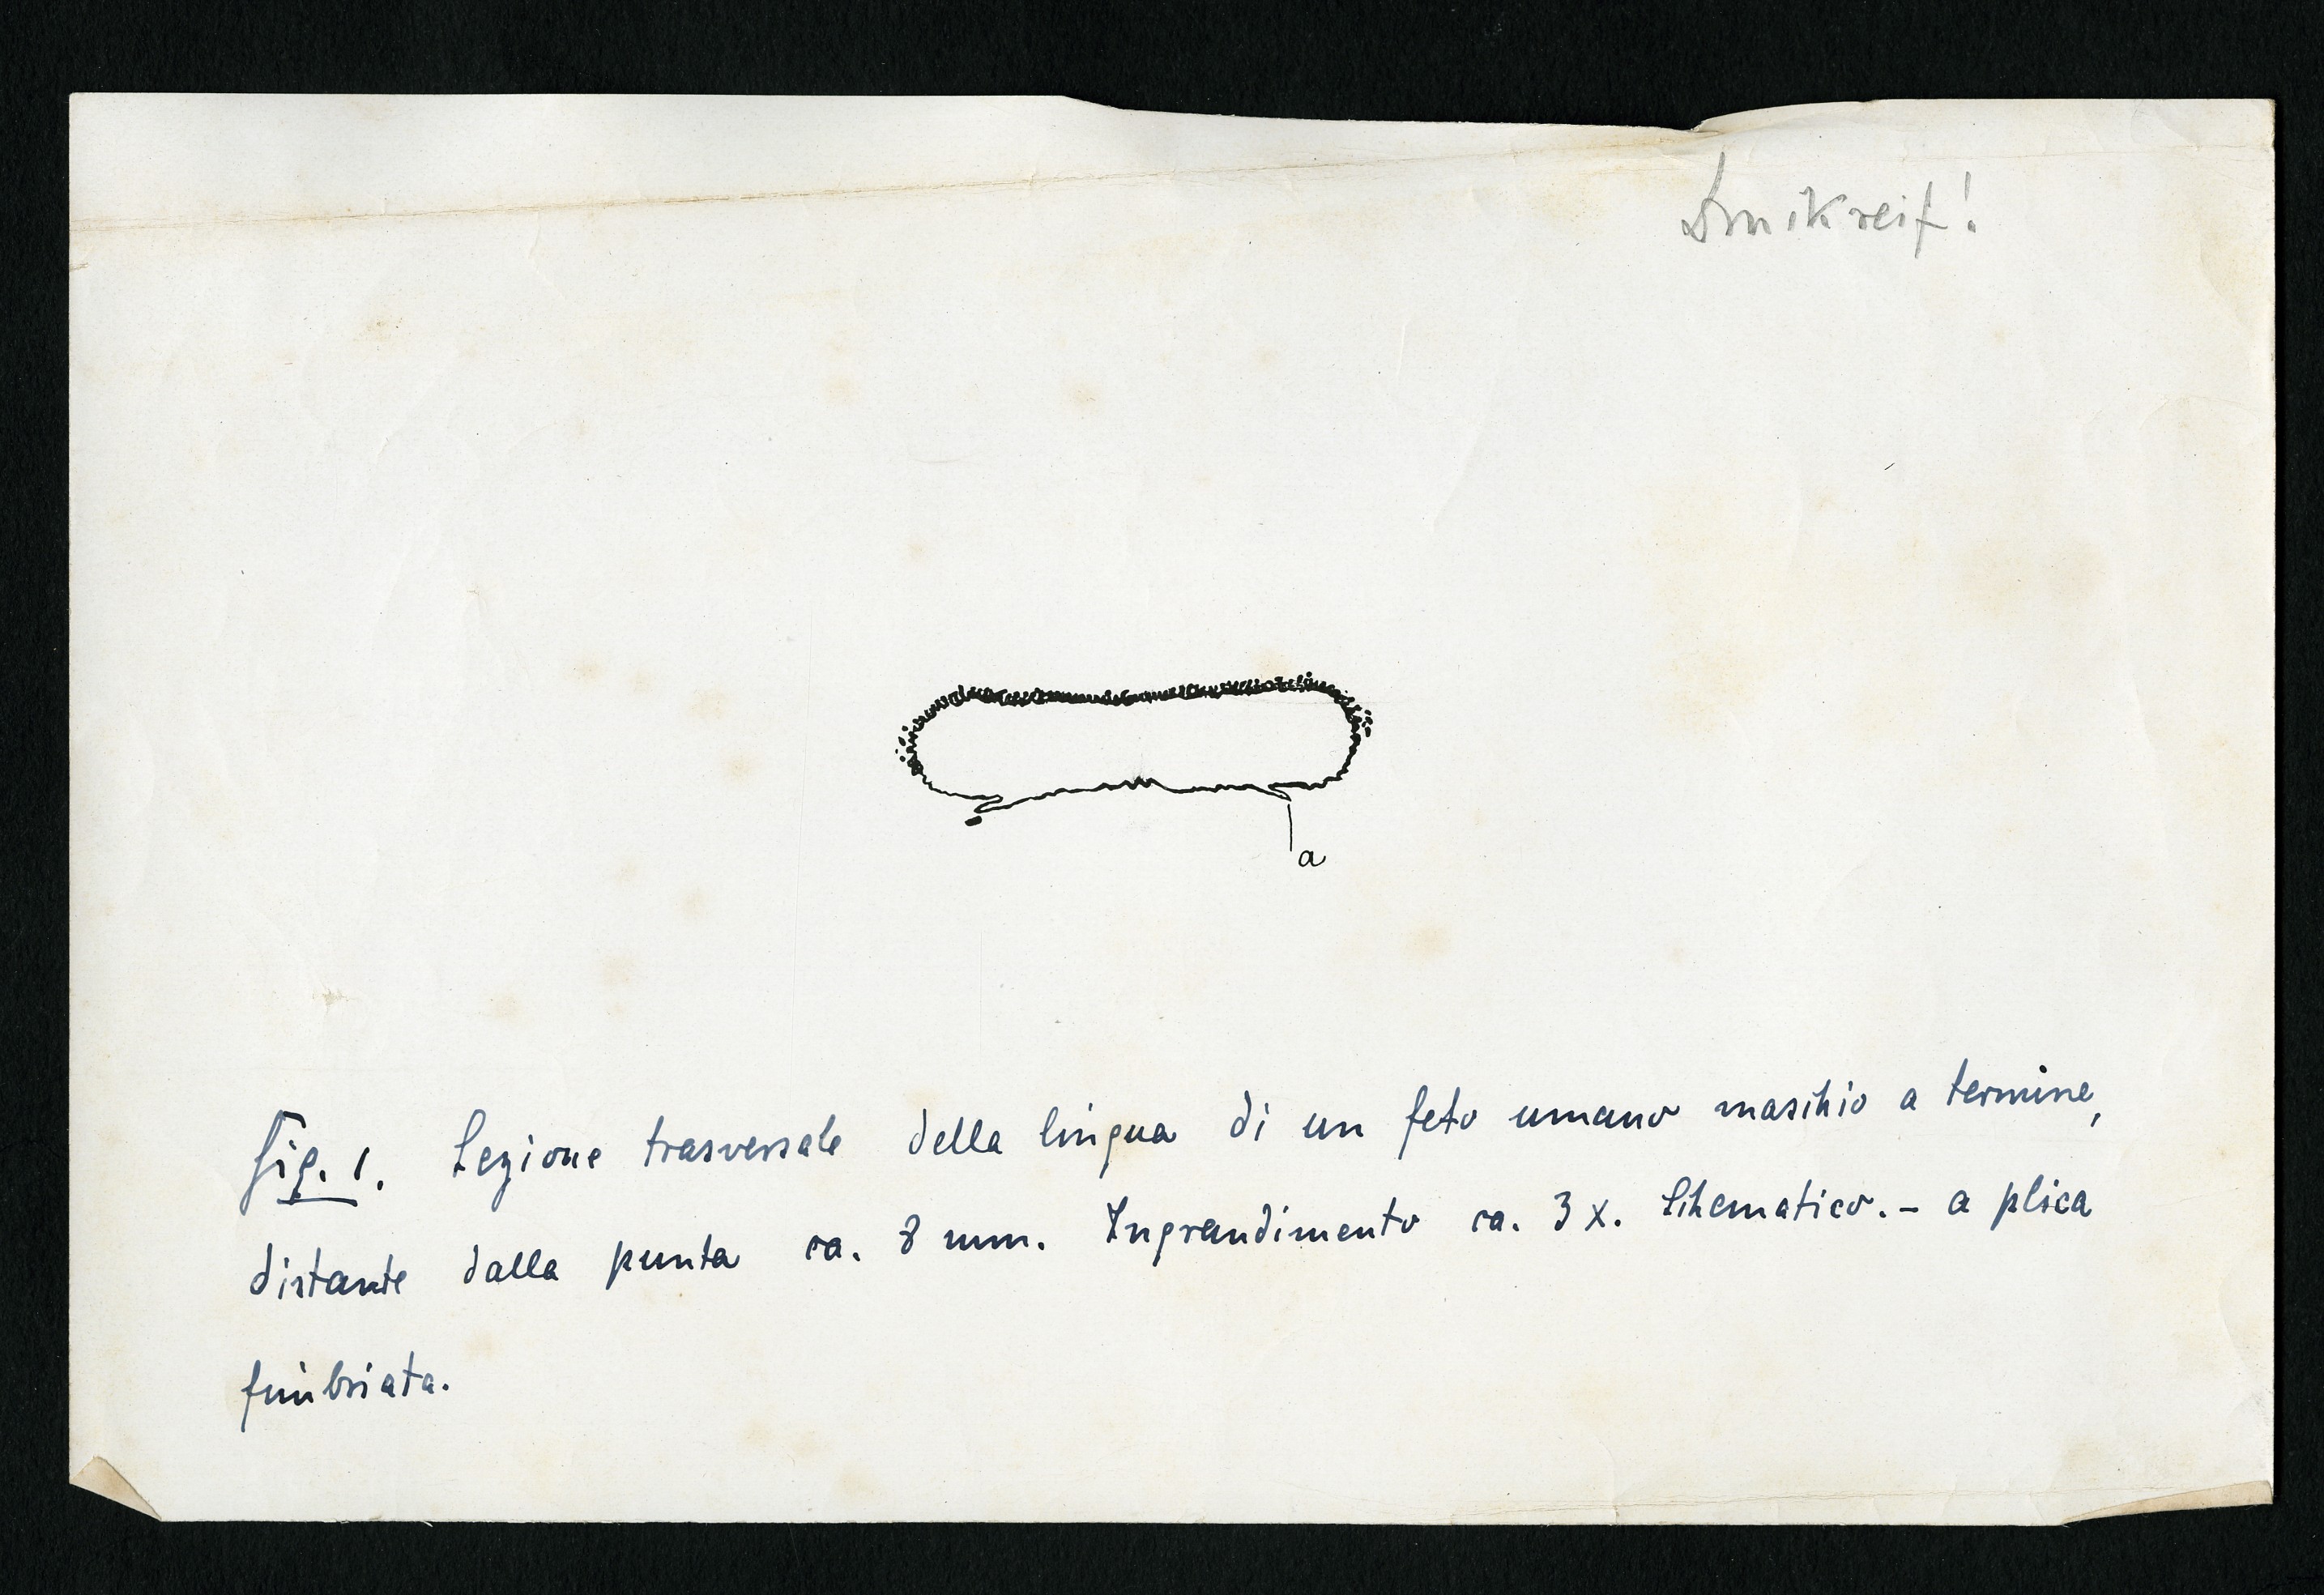 Druckreif!
a
Fig. 1. Sezione trasversale della lingua di un feto umano maschio a termine,
distante dalla punta ca. 8 mm. Ingrandimento ca. 3 x. Schematico. - a plica
fimbriata.